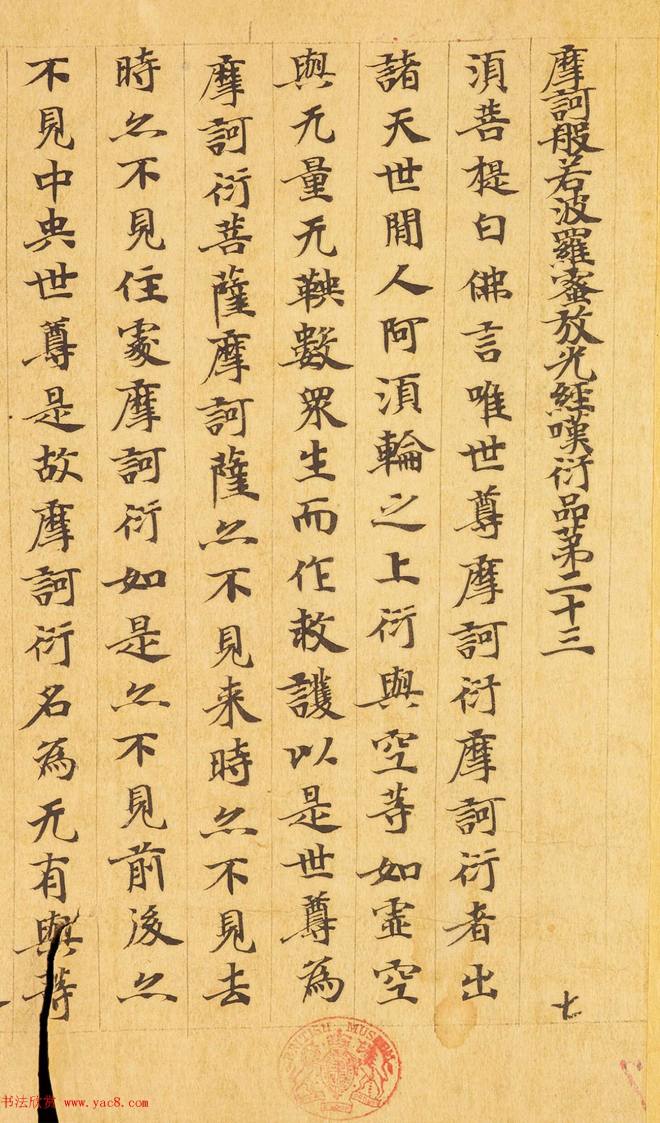 摩訶般若波羅蜜放光經嘆衍品第二十三
七
須菩提白佛言唯世尊摩訶衍摩訶衍者出
諸天世間人阿須輪之上衍與空等如虛空
與无量无鞅數眾生而作救護以是世尊為
摩訶衍菩薩摩訶薩亦不見来時亦不見去
時亦不見住處摩訶衍如是亦不見前後亦
不見中央世尊是故摩訶衍名為无有與等
BRITISH MUSEUM
书法欣赏 www.yac8.com